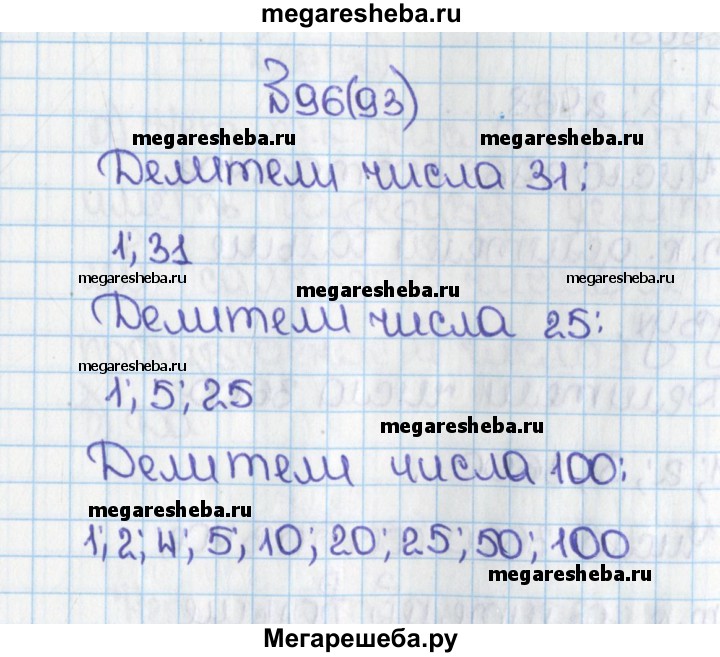 megaresheba.ru
№96(93)
megaresheba.ru megaresheba.ru
Делители числа 31:
1; 31
megaresheba.ru megaresheba.ru megaresheba.ru
Делители числа 25:
megaresheba.ru
1; 5; 25
megaresheba.ru
Делители числа 100:
megaresheba.ru
1; 2; 4; 5; 10; 20; 25; 50; 100
megaresheba.ru
Мегарешеба.ру